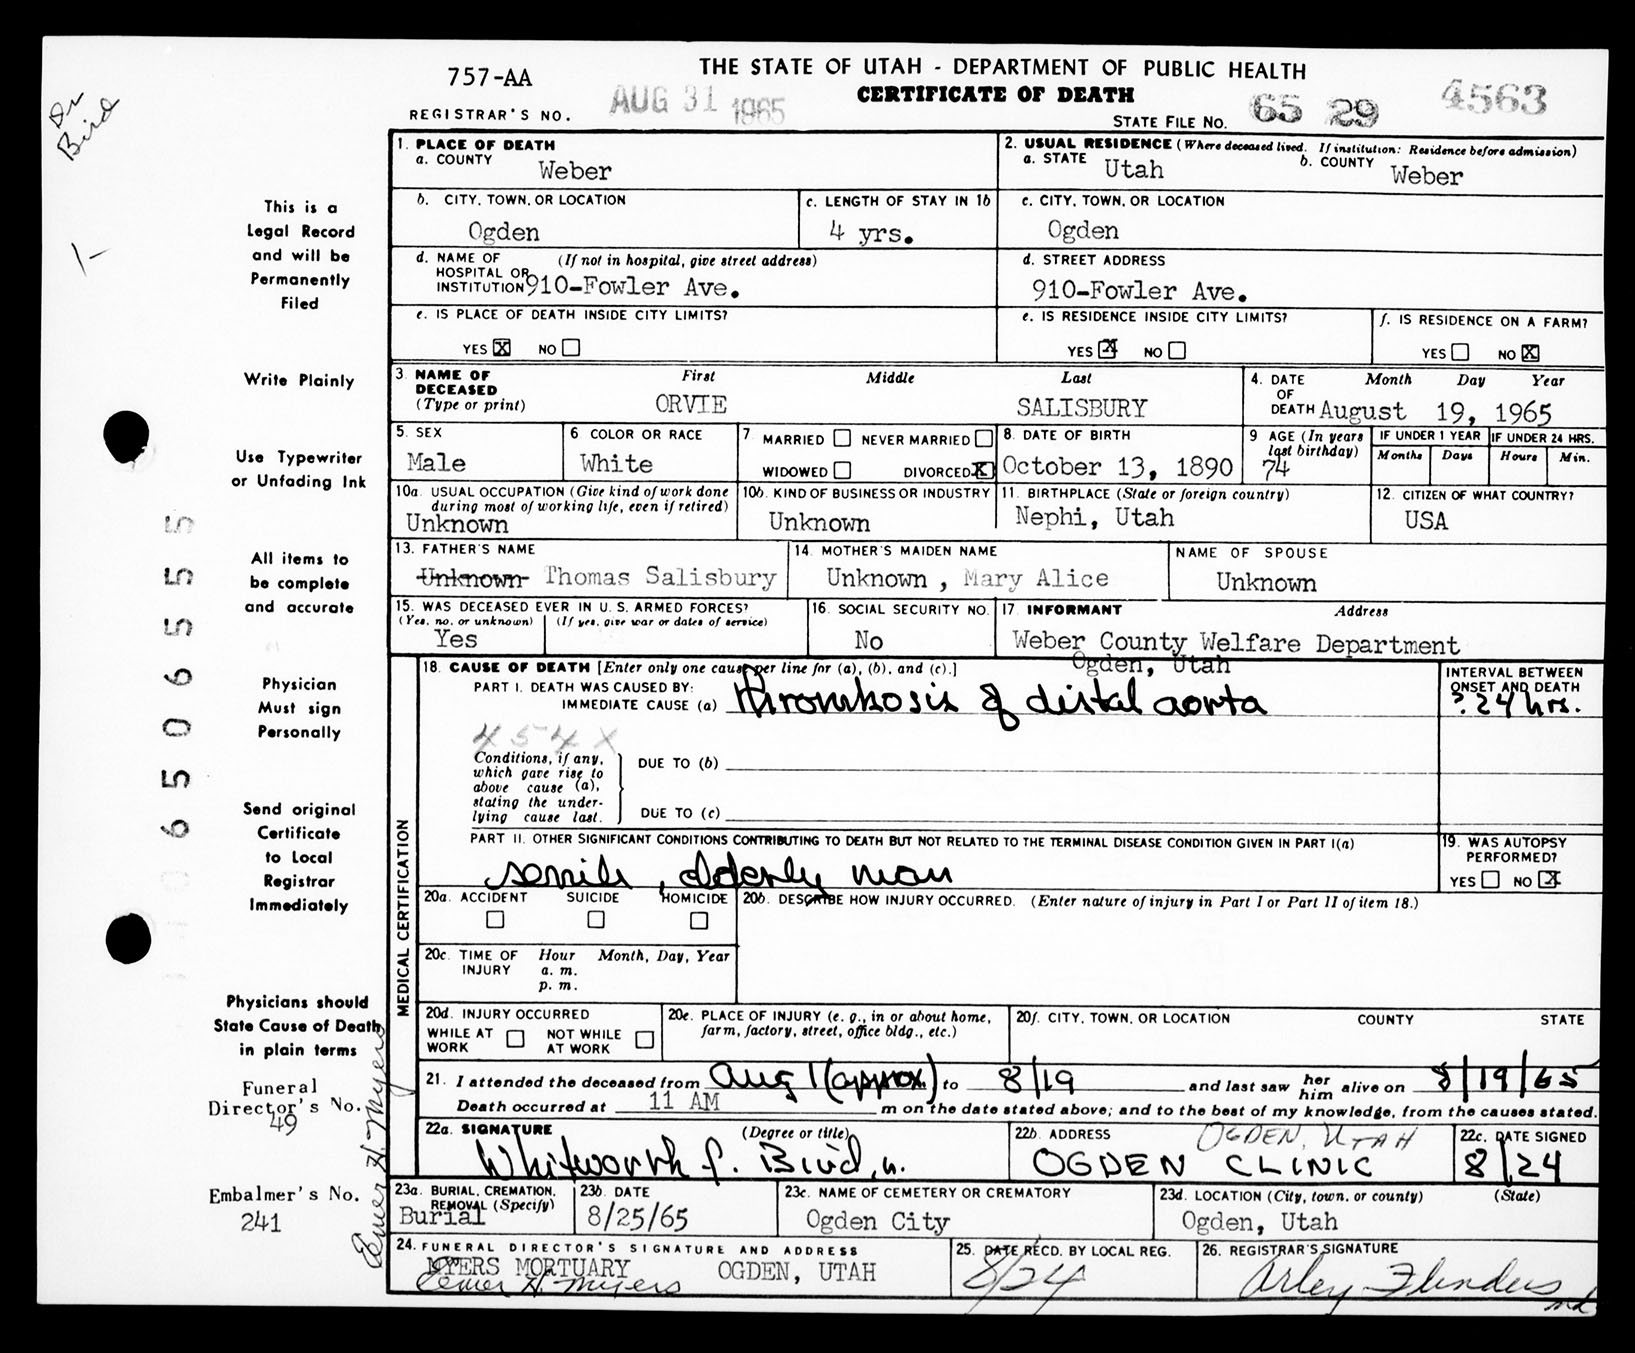 Dr
Bird
1-
757-AA
REGISTRAR'S NO.
AUG 31 1965
THE STATE OF UTAH - DEPARTMENT OF PUBLIC HEALTH
CERTIFICATE OF DEATH
STATE FILE NO. 65 29 4563
This is a
Legal Record
and will be
Permanently
Filed
Write Plainly
Use Typewriter
or Unfading Ink
All items to
be complete
and accurate
Physician
Must sign
Personally
Send original
Certificate
to Local
Registrar
Immediately
Physicians should
State Cause of Death
in plain terms
Funeral
Director's No.
49
Embalmer's No.
241
Elmer H. Myers
1. PLACE OF DEATH
a. COUNTY Weber
2. USUAL RESIDENCE (Where deceased lived. If institution: Residence before admission)
a. STATE Utah b. COUNTY Weber
b. CITY, TOWN, OR LOCATION
Ogden
c. LENGTH OF STAY IN 1b
4 yrs.
c. CITY, TOWN, OR LOCATION
Ogden
d. NAME OF HOSPITAL OR INSTITUTION (If not in hospital, give street address)
910-Fowler Ave.
d. STREET ADDRESS
910-Fowler Ave.
e. IS PLACE OF DEATH INSIDE CITY LIMITS?
YES X NO
e. IS RESIDENCE INSIDE CITY LIMITS?
YES X NO
f. IS RESIDENCE ON A FARM?
YES NO X
3. NAME OF DECEASED (Type or print)
First Middle Last
ORVIE SALISBURY
4. DATE OF DEATH Month Day Year
August 19, 1965
5. SEX
Male
6 COLOR OR RACE
White
7 MARRIED NEVER MARRIED
WIDOWED DIVORCED X
8. DATE OF BIRTH
October 13, 1890
9 AGE (In years last birthday)
74
IF UNDER 1 YEAR
Months Days
IF UNDER 24 HRS.
Hours Min.
10a. USUAL OCCUPATION (Give kind of work done during most of working life, even if retired)
Unknown
10b. KIND OF BUSINESS OR INDUSTRY
Unknown
11. BIRTHPLACE (State or foreign country)
Nephi, Utah
12. CITIZEN OF WHAT COUNTRY?
USA
13. FATHER'S NAME
Unknown Thomas Salisbury
14. MOTHER'S MAIDEN NAME
Unknown, Mary Alice
NAME OF SPOUSE
Unknown
15. WAS DECEASED EVER IN U.S. ARMED FORCES?
(Yes, no, or unknown) (If yes, give war or dates of service)
Yes
16. SOCIAL SECURITY NO.
No
17. INFORMANT Address
Weber County Welfare Department
Ogden, Utah
MEDICAL CERTIFICATION
18. CAUSE OF DEATH [Enter only one cause per line for (a), (b), and (c).]
PART I. DEATH WAS CAUSED BY:
IMMEDIATE CAUSE (a) thrombosis of distal aorta
INTERVAL BETWEEN ONSET AND DEATH
? 24 hrs.
454X
Conditions, if any,
which gave rise to
above cause (a),
stating the under-
lying cause last.
DUE TO (b)
DUE TO (c)
PART II. OTHER SIGNIFICANT CONDITIONS CONTRIBUTING TO DEATH BUT NOT RELATED TO THE TERMINAL DISEASE CONDITION GIVEN IN PART I(a)
senile, elderly man
19. WAS AUTOPSY PERFORMED?
YES NO X
20a. ACCIDENT SUICIDE HOMICIDE
20b. DESCRIBE HOW INJURY OCCURRED. (Enter nature of injury in Part I or Part II of item 18.)
20c. TIME OF INJURY Hour Month, Day, Year
a. m.
p. m.
20d. INJURY OCCURRED
WHILE AT WORK NOT WHILE AT WORK
20e. PLACE OF INJURY (e. g., in or about home, farm, factory, street, office bldg., etc.)
20f. CITY, TOWN, OR LOCATION COUNTY STATE
21. I attended the deceased from Aug 1 (approx.) to 8/19 and last saw her him alive on 8/19/65
Death occurred at 11 AM m on the date stated above; and to the best of my knowledge, from the causes stated.
22a. SIGNATURE (Degree or title)
Whitworth F. Bird,
22b. ADDRESS OGDEN, UTAH
OGDEN CLINIC
22c. DATE SIGNED
8/24
23a. BURIAL, CREMATION, REMOVAL (Specify)
Burial
23b. DATE
8/25/65
23c. NAME OF CEMETERY OR CREMATORY
Ogden City
23d. LOCATION (City, town, or county) (State)
Ogden, Utah
24. FUNERAL DIRECTOR'S SIGNATURE AND ADDRESS
MYERS MORTUARY OGDEN, UTAH
Elmer H. Myers
25. DATE RECD. BY LOCAL REG.
8/24
26. REGISTRAR'S SIGNATURE
Arley Flinders
md